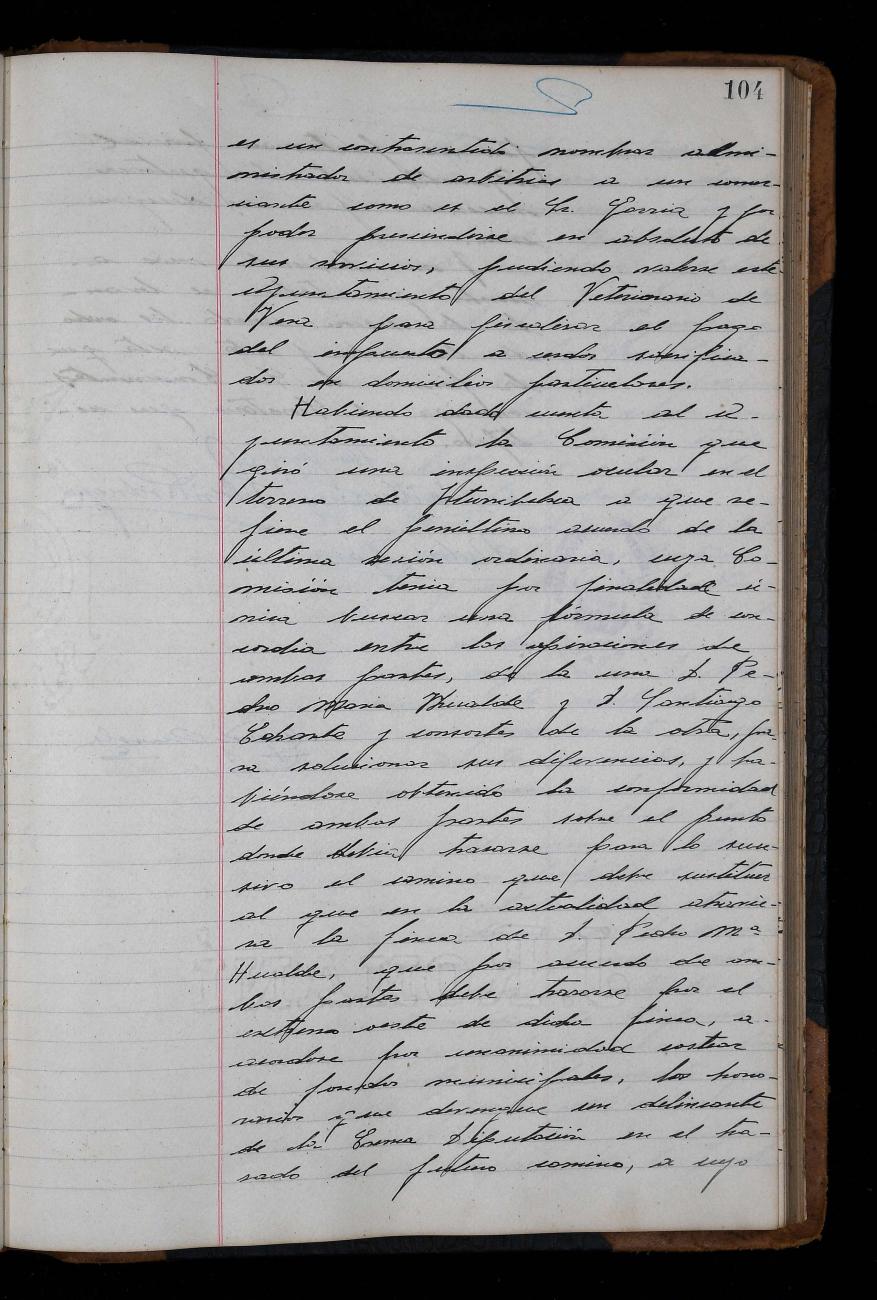 104
es un contrasentido nombrar admi-
nistrador de arbitrios a un comer-
ciante como es el Sr. Garcia y por
poder prescindirse en absoluto de
sus servicios, pudiendo valerse este
Ayuntamiento del Veterinario de
Vera para fiscalizar el pago
del impuesto a cerdos sacrifica-
dos en domicilios particulares.
Habiendo dado cuenta al A-
yuntamiento la Comisión que
giró una inspección ocular en el
terreno de Iturribeltza a que re-
fiere el penúltimo acuerdo de la
última sesión ordinaria, cuya Co-
misión tenia por finalidad ú-
nica buscar una fórmula de con-
cordia entre las aspiraciones de
ambas partes, de la una D. Pe-
dro Maria Hualde y D. Santiago
Echarte y consortes de la otra, pa-
ra solucionar sus diferencias, y ha-
biéndose obtenido la conformidad
de ambas partes sobre el punto
donde debia trazarse para lo suce-
sivo el camino que debe sustituir
al que en la actualidad atravie-
sa la finca de D. Pedro Mª
Hualde, que por acuerdo de am-
bas partes debe trazarse por el
extremo oeste de dicha finca, a-
cuerdase por unanimidad costear
de fondos municipales, los hono-
rarios que devengue un delineante
de la Excma Diputación en el tra-
zado del futuro camino, a cuyo